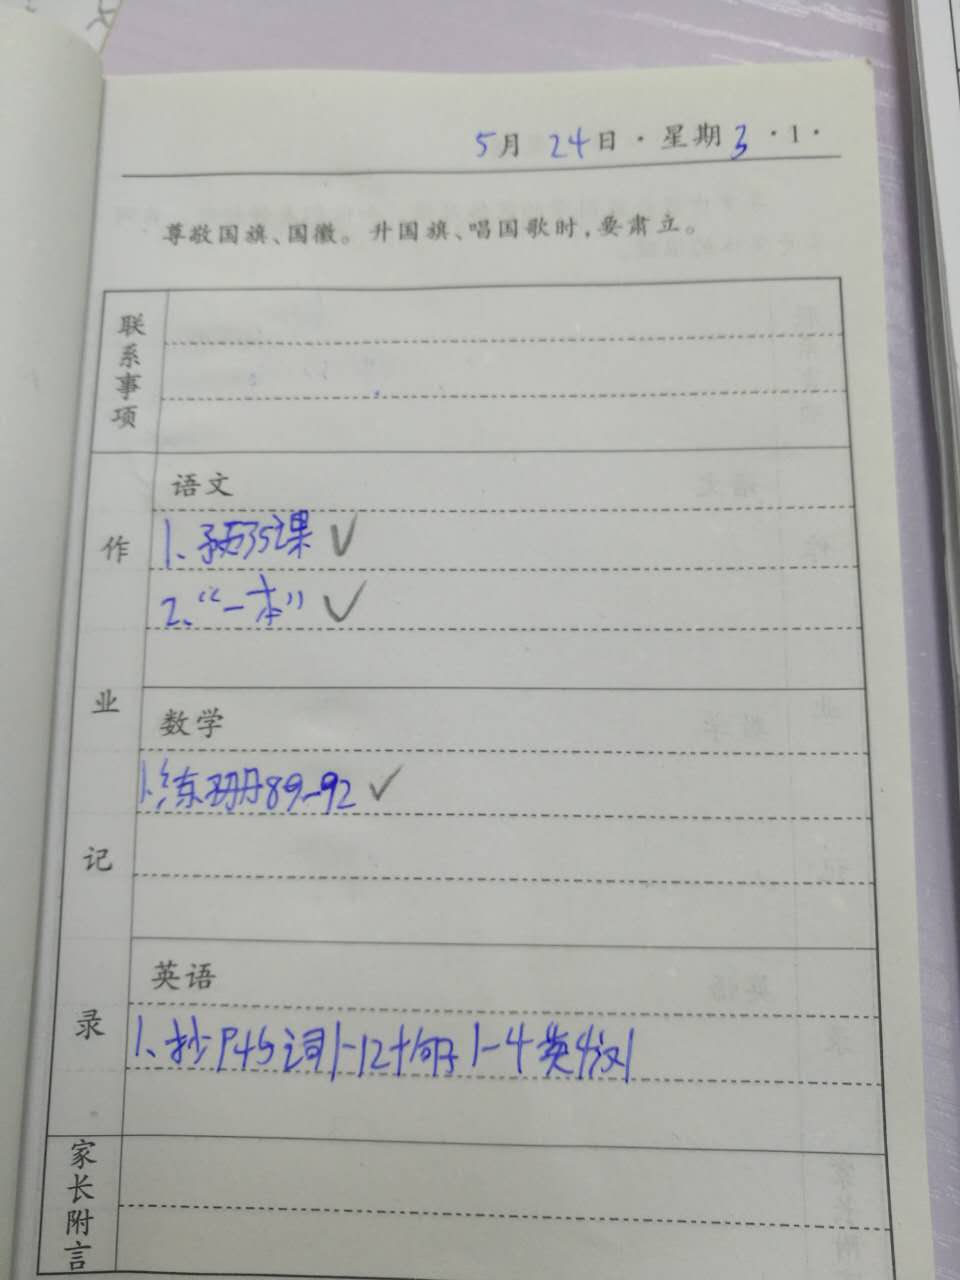 5月 24日·星期3·1·
尊敬国旗、国徽。升国旗、唱国歌时,要肃立。
联系事项
作业记录
语文
1、预习35课 ✓
2、“一本” ✓
数学
1、练习册89-92 ✓
英语
1、抄P45词1-12+句子1-4英4汉1
家长附言